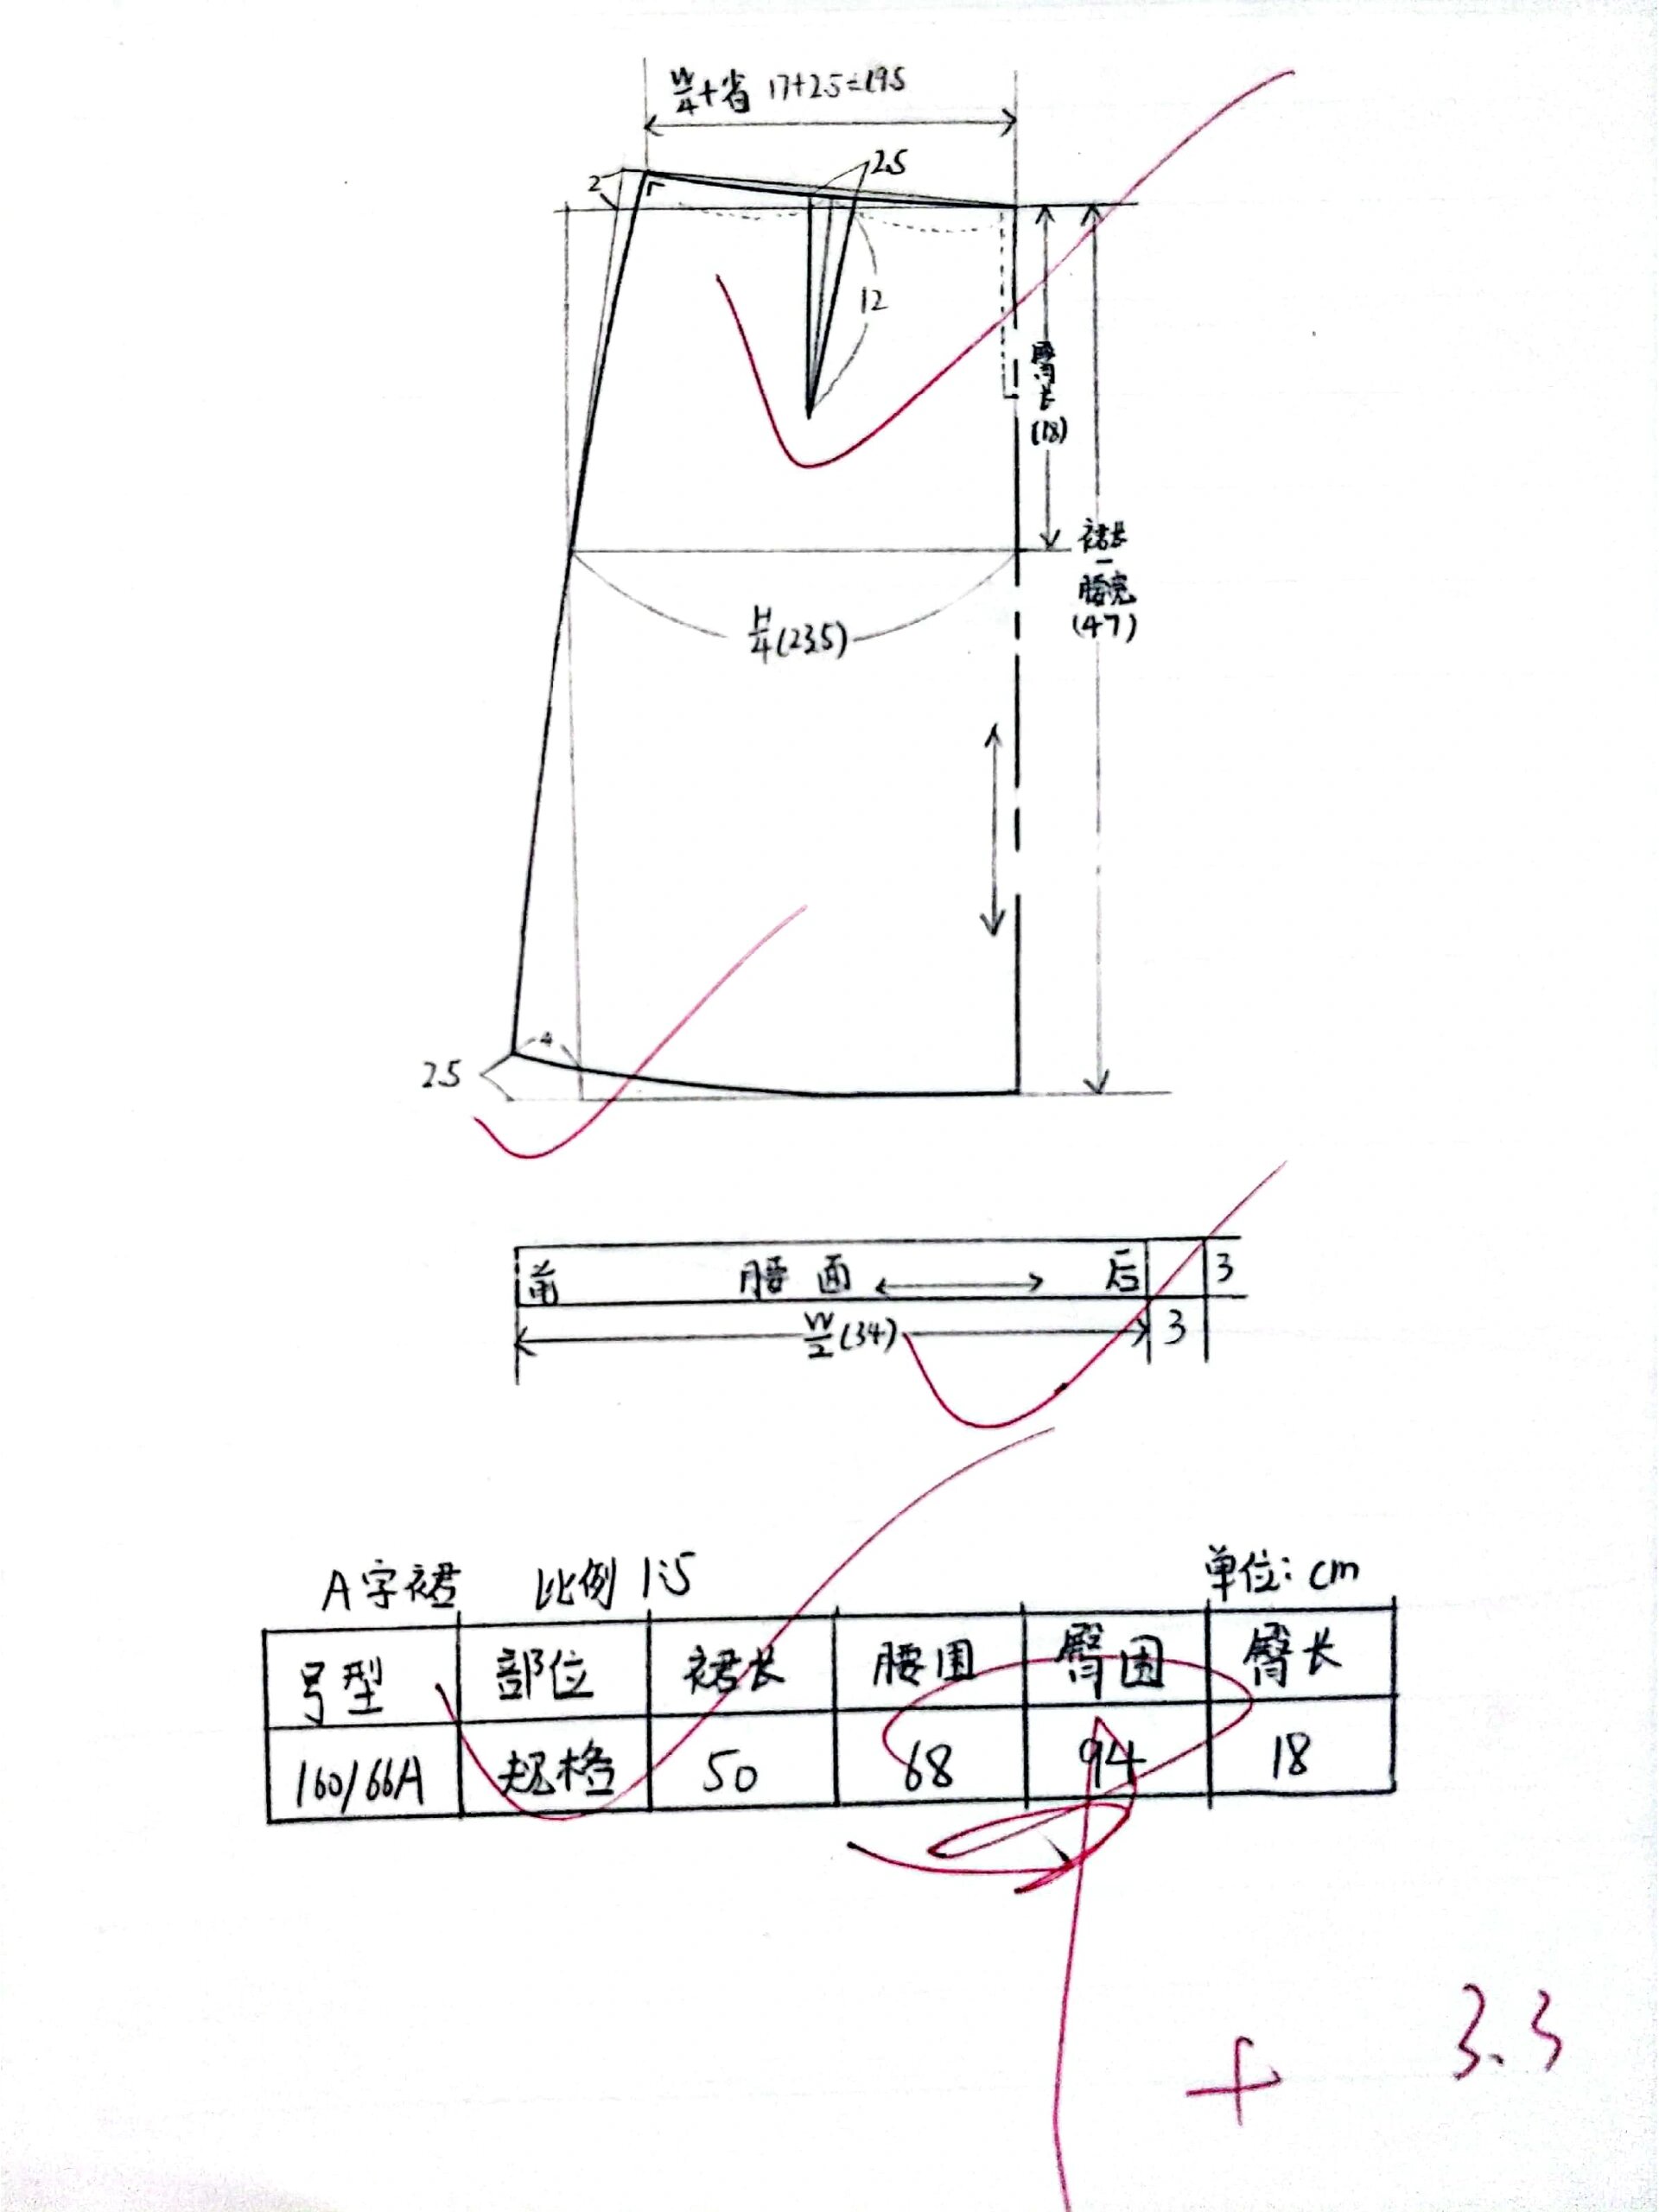 W/4+省 17+2.5=19.5
2
2.5
12
臀长
(18)
裙长
-
腰宽
(47)
H/4(23.5)
4
2.5
前 腰面 后 3
W/2(34) 3
A字裙 比例 1:5 单位: cm
号型 部位 裙长 腰围 臀围 臀长
160/66A 规格 50 68 94 18
+ 3.3